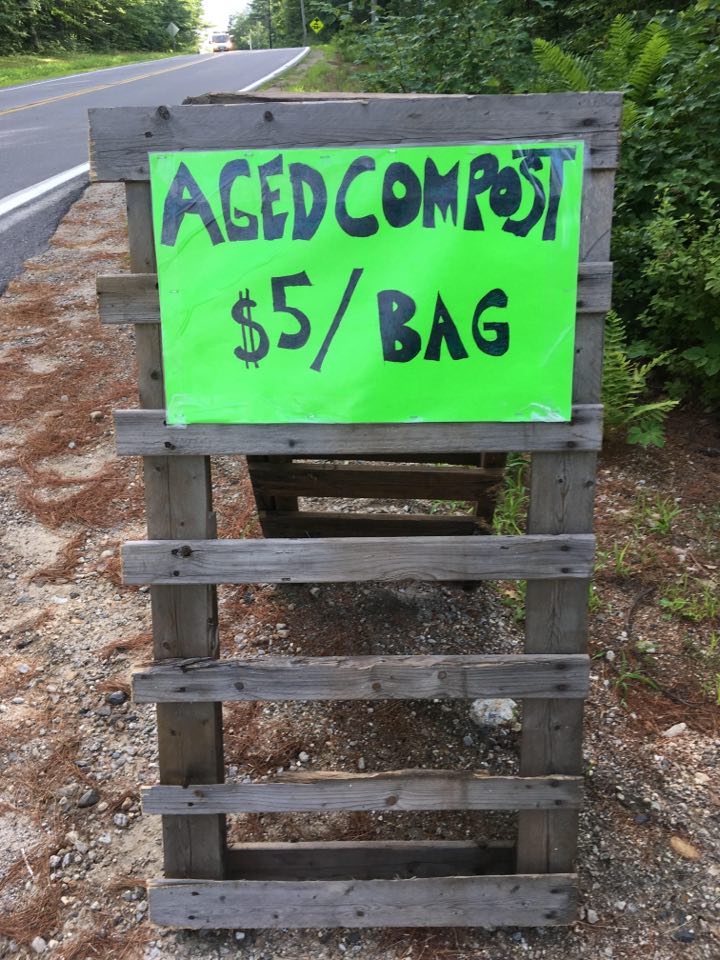 AGED COMPOST
$5/ BAG